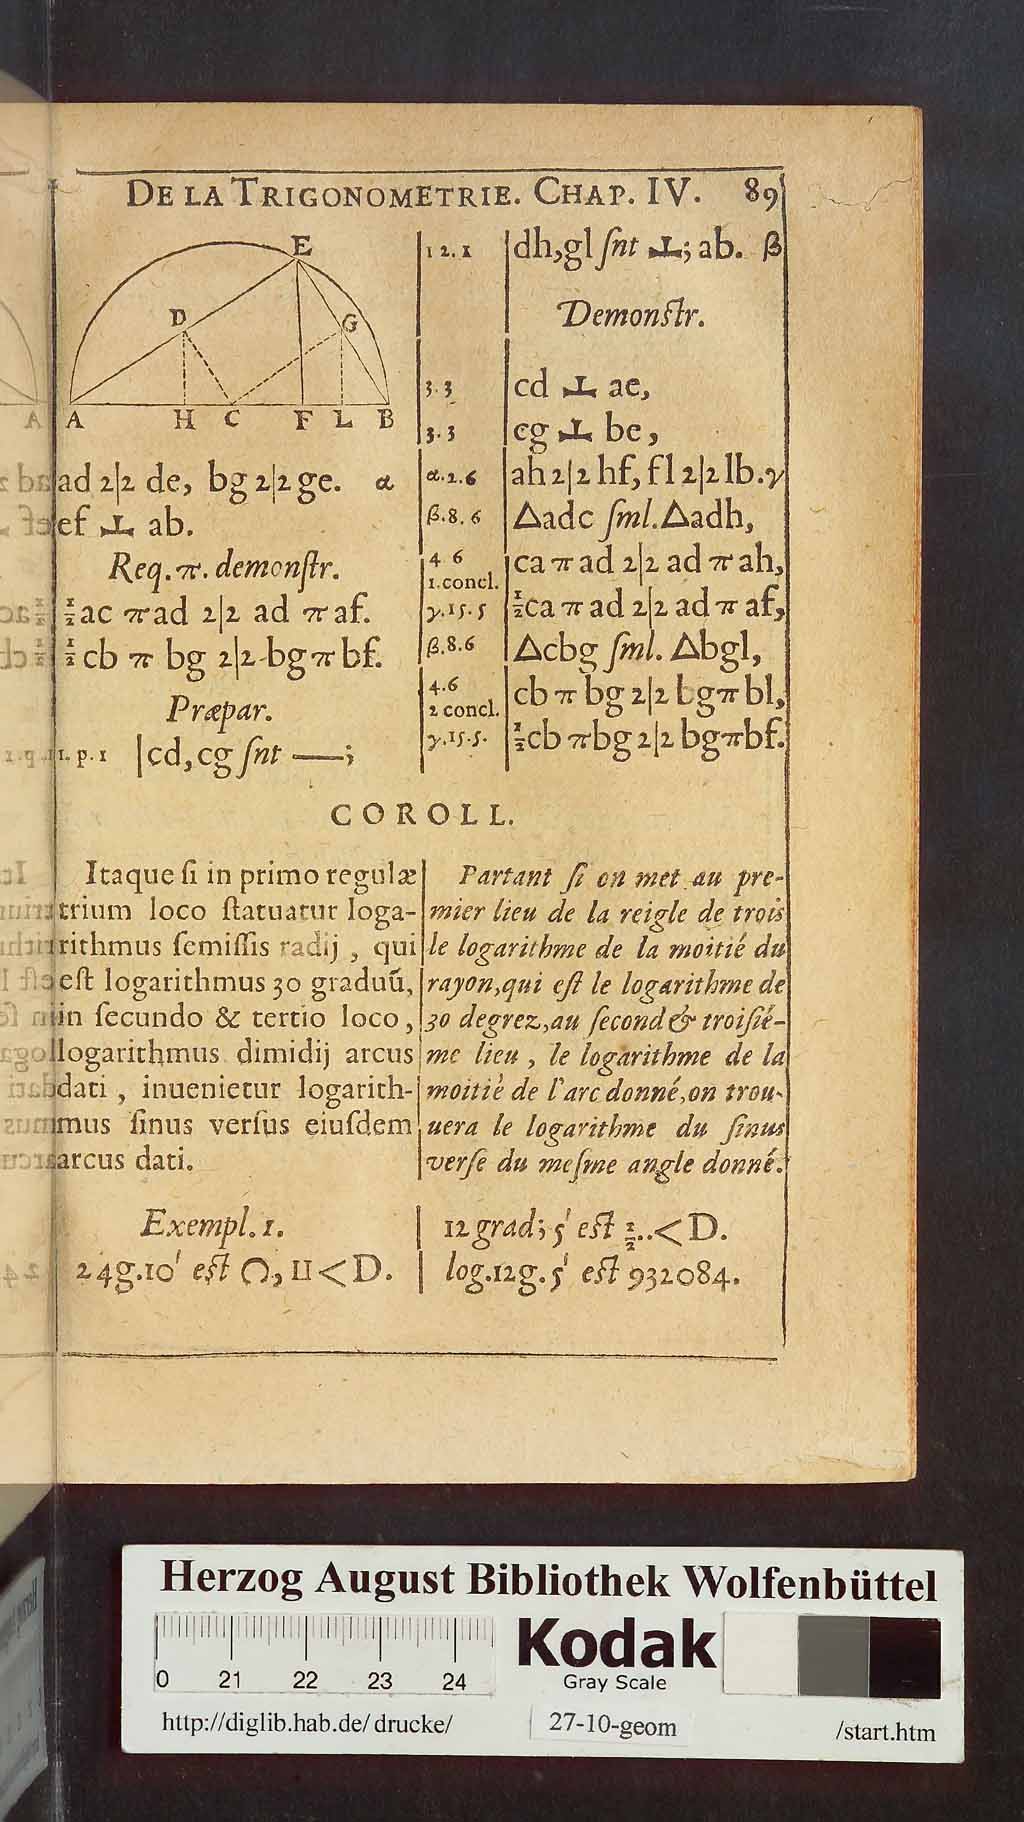 DE LA TRIGONOMETRIE. CHAP. IV. 89
E
D
G
A H C F L B
ad 2|2 de, bg 2|2 ge. α
ef ⊥ ab.
Req. π. demonſtr.
½ac π ad 2|2 ad π af.
½cb π bg 2|2 bg π bf.
Præpar.
1. p. 1 |cd, cg ſnt —;
12. 1 dh, gl ſnt ⊥; ab. β
Demonſtr.
3. 3 cd ⊥ ae,
3. 3 cg ⊥ be,
α. 2. 6 ah 2|2 hf, fl 2|2 lb. γ
β. 8. 6 △adc ſml. △adh,
4 6
1. concl. ca π ad 2|2 ad π ah,
γ. 15. 5 ½ca π ad 2|2 ad π af,
β. 8. 6 △cbg ſml. △bgl,
4. 6
2 concl. cb π bg 2|2 bg π bl,
γ. 15. 5. ½cb π bg 2|2 bg π bf.
COROLL.
Itaque ſi in primo regulæ
trium loco ſtatuatur loga-
rithmus ſemiſſis radij , qui
eſt logarithmus 30 graduũ,
in ſecundo & tertio loco ,
logarithmus dimidij arcus
dati , inuenietur logarith-
mus ſinus verſus eiuſdem
arcus dati.
Partant ſi on met au pre-
mier lieu de la reigle de trois
le logarithme de la moitié du
rayon, qui eſt le logarithme de
30 degrez, au ſecond & troiſié-
me lieu , le logarithme de la
moitié de l'arc donné, on trou-
uera le logarithme du ſinus
verſe du meſme angle donné.
Exempl. 1.
24g. 10' eſt ∩, II < D.
12 grad; 5' eſt ½.. < D.
log. 12g. 5' eſt 932084.
Herzog August Bibliothek Wolfenbüttel
0 21 22 23 24
Kodak
Gray Scale
http://diglib.hab.de/drucke/ 27-10-geom /start.htm